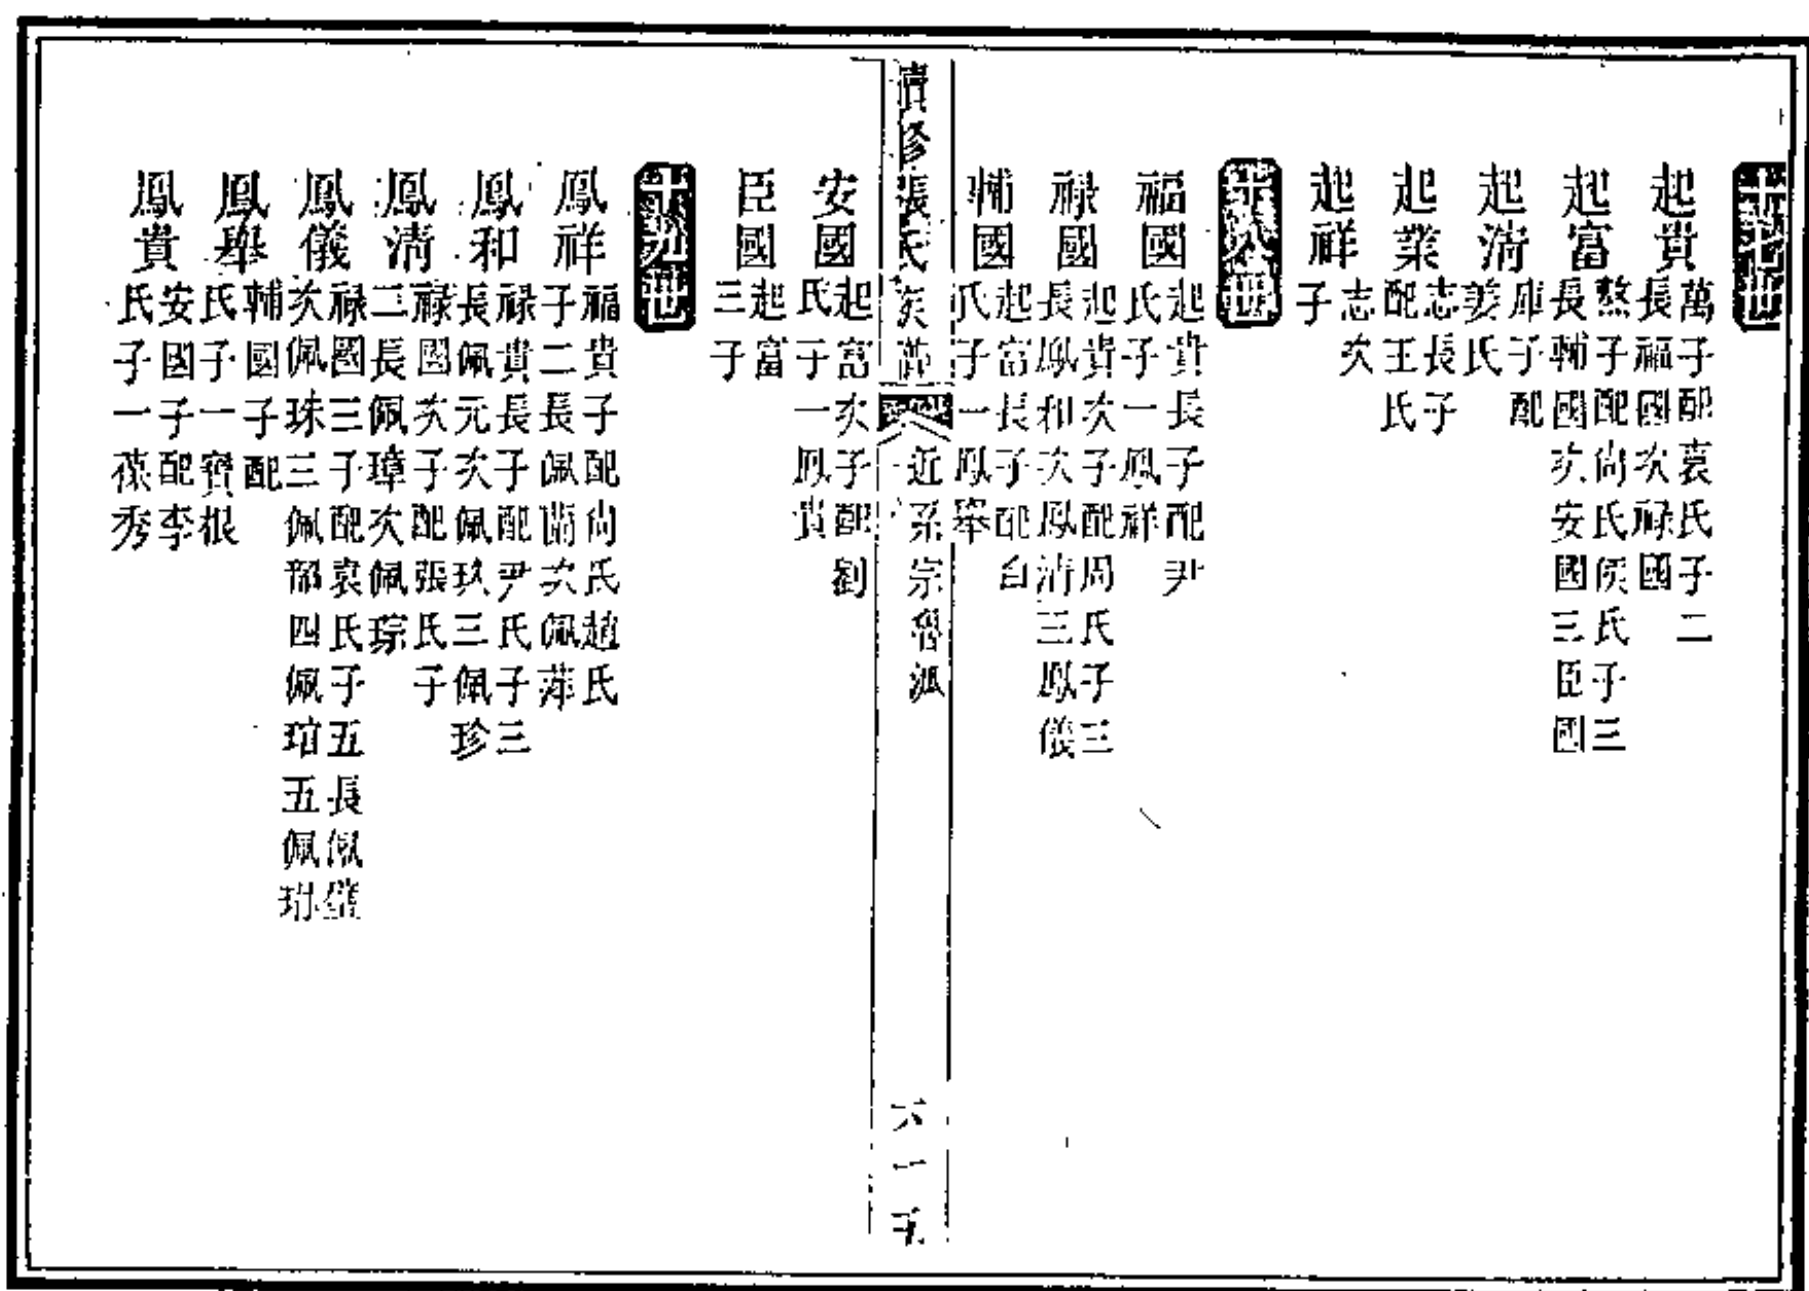 十七世
起貴 萬子配袁氏子二
長福國次祿國
起富 熬子配尙氏侯氏子三
長輔國次安國三臣國
起淸 庫子配
姜氏
起業 志長子
配王氏
起祥 志次
子
十八世
福國 起貴長子配尹
氏子一鳳祥
祿國 起貴次子配周氏子三
長鳳和次鳳淸三鳳儀
輔國 起富長子配白
氏子一鳳舉
續修張氏族譜
近系宗魯派
六十五
安國 起富次子配劉
氏子一鳳貴
臣國 起富
三子
十九世
鳳祥 福貴子配尙氏趙氏
子二長佩蘭次佩萍
鳳和 祿貴長子配尹氏子三
長佩元次佩玖三佩珍
鳳淸 祿國次子配張氏子
二長佩璋次佩琮
鳳儀 祿國三子配袁氏子五長佩
次佩珠三佩韶四佩瑄五佩
鳳舉 輔國子配
氏子一寶根
鳳貴 安國子配李
氏子一葆秀